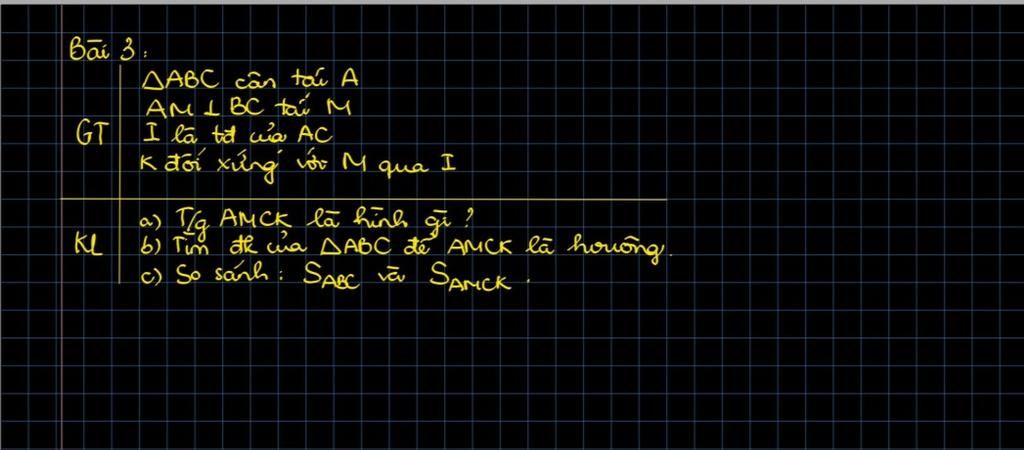 Bài 3:
△ABC cân tại A
AM ⊥ BC tại M
GT I là tđ của AC
K đối xứng với M qua I
a) T/g AMCK là hình gì?
KL b) Tìm đk của △ABC để AMCK là hvuông.
c) So sánh: S_ABC và S_AMCK.